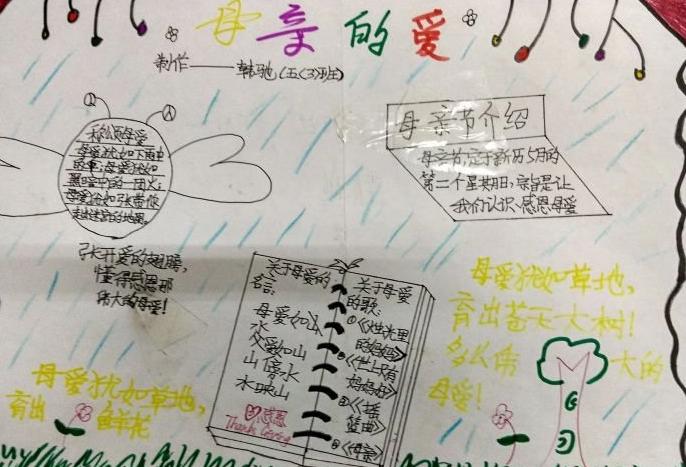 母亲的爱
制作——韩驰(五(3)班)
母亲节介绍
母亲节,定于新历5月的
第二个星期日,宗旨是让
我们认识、感恩母爱
歌颂母爱
母爱犹如下雨中
的伞;母爱犹如
黑暗中的一团火;
母爱犹如
张开爱的翅膀,
懂得感恩那
伟大的母爱!
关于母爱的
名言:
母爱如山
水
父爱如山
山停水
水映山
感恩
关于母爱
的歌:
①《烛光里
的妈妈》
②《世上只有
妈妈好》
③《摇
篮曲》
④《母亲》
母爱犹如草地,
育出苍天大树!
多么伟大的
母爱!
母爱犹如草地,
育出鲜花